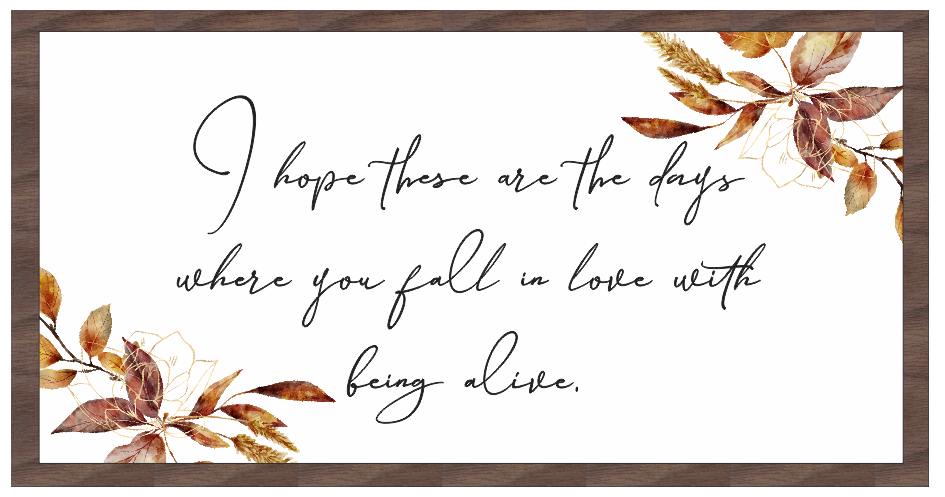 I hope these are the days
where you fall in love with
being alive.